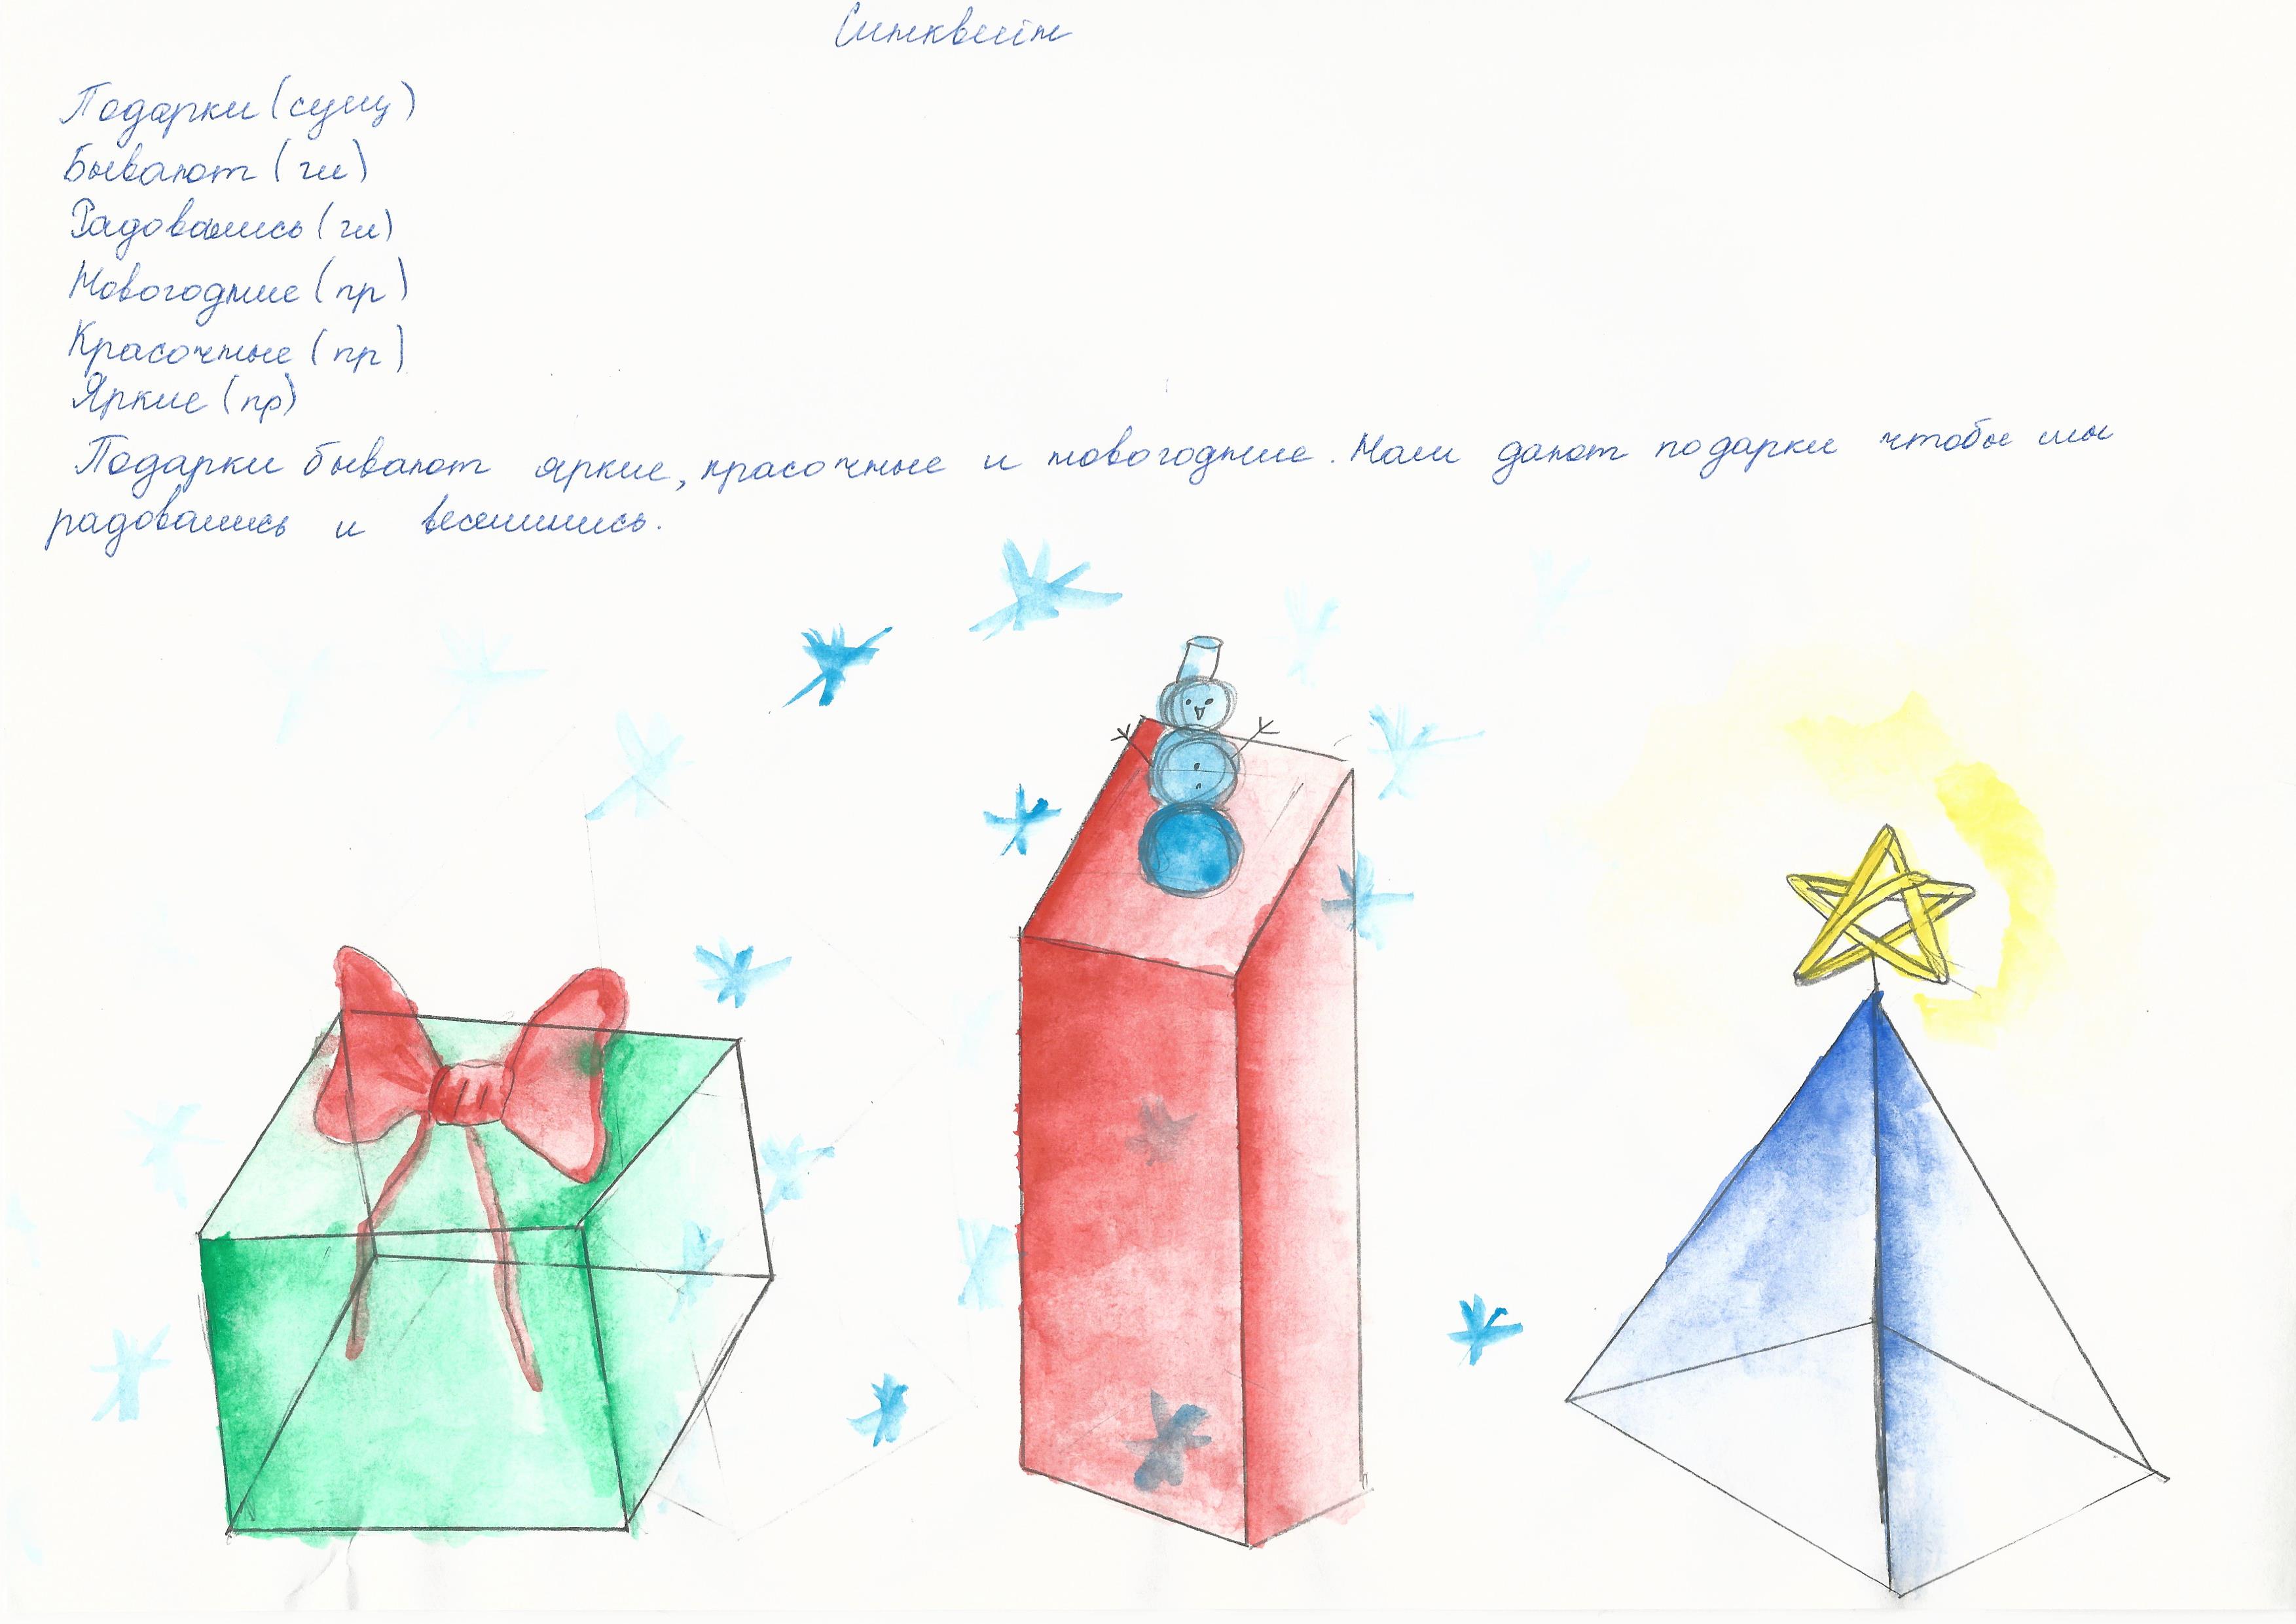 Синквейн
Подарки (сущ)
Бывают (гл)
Радовались (гл)
Новогодние (пр)
Красочные (пр)
Яркие (пр)
Подарки бывают яркие, красочные и новогодние. Нам дают подарки чтобы мы
радовались и веселились.